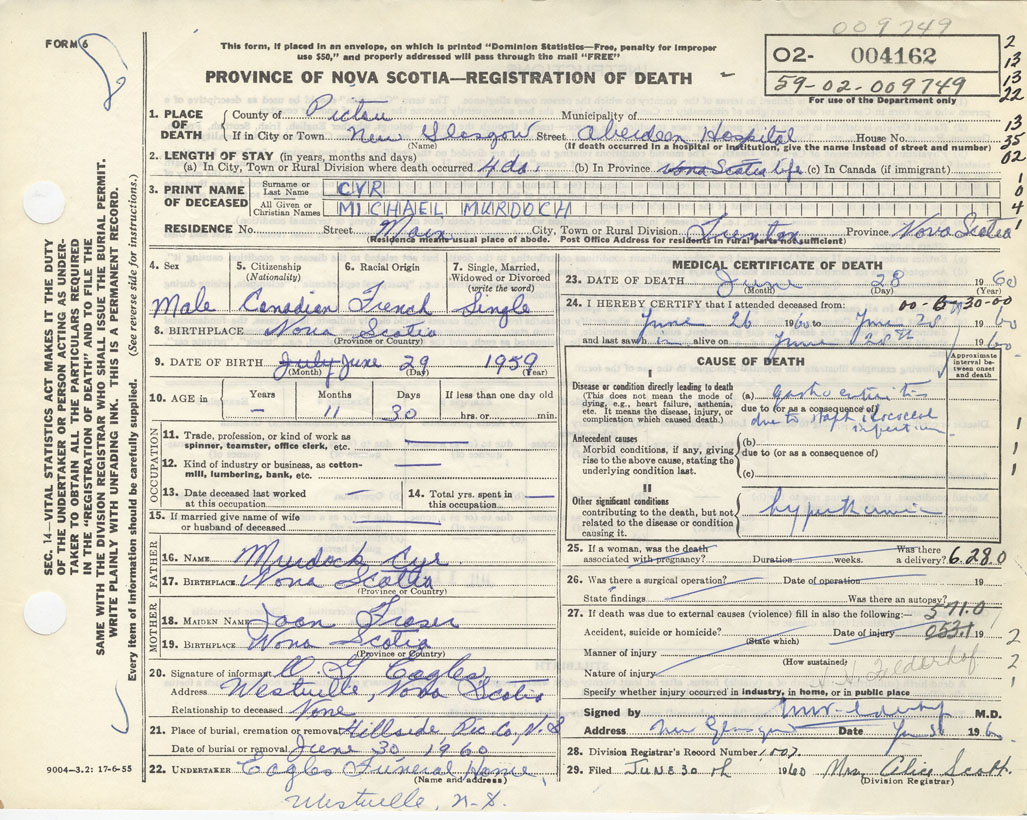 009749
FORM 6
This form, if placed in an envelope, on which is printed "Dominion Statistics—Free, penalty for improper
use $50," and properly addressed will pass through the mail "FREE"
PROVINCE OF NOVA SCOTIA—REGISTRATION OF DEATH
02- 004162
59-02-009749
For use of the Department only
2
13
13
22
13
35
02
1
0
4
1
SEC. 14—VITAL STATISTICS ACT MAKES IT THE DUTY
OF THE UNDERTAKER OR PERSON ACTING AS UNDER-
TAKER TO OBTAIN ALL THE PARTICULARS REQUIRED
IN THE "REGISTRATION OF DEATH" AND TO FILE THE
SAME WITH THE DIVISION REGISTRAR WHO SHALL ISSUE THE BURIAL PERMIT.
WRITE PLAINLY WITH UNFADING INK. THIS IS A PERMANENT RECORD.
Every item of information should be carefully supplied. (See reverse side for instructions.)
1. PLACE OF DEATH County of Pictou Municipality of
If in City or Town New Glasgow Street Aberdeen Hospital House No.
(Name) (If death occurred in a hospital or institution, give the name instead of street and number)
2. LENGTH OF STAY (in years, months and days)
(a) In City, Town or Rural Division where death occurred 4 da. (b) In Province Nova Scotia life (c) In Canada (if immigrant)
3. PRINT NAME OF DECEASED Surname or Last Name CYR
All Given or Christian Names MICHAEL MURDOCH
RESIDENCE No. Street Main City, Town or Rural Division Trenton Province Nova Scotia
(Residence means usual place of abode. Post Office Address for residents in rural parts not sufficient)
4. Sex 5. Citizenship (Nationality) 6. Racial Origin 7. Single, Married, Widowed or Divorced (write the word)
Male Canadian French Single
8. BIRTHPLACE Nova Scotia
(Province or Country)
9. DATE OF BIRTH July June 29 1959
(Month) (Day) (Year)
10. AGE in Years Months Days If less than one day old
– 11 30 hrs. or min.
OCCUPATION
11. Trade, profession, or kind of work as
spinner, teamster, office clerk, etc. —
12. Kind of industry or business, as cotton-
mill, lumbering, bank, etc. —
13. Date deceased last worked at this occupation — 14. Total yrs. spent in this occupation —
15. If married give name of wife
or husband of deceased —
FATHER
16. NAME Murdock Cyr
17. BIRTHPLACE Nova Scotia
(Province or Country)
MOTHER
18. MAIDEN NAME Joan Fraser
19. BIRTHPLACE Nova Scotia
(Province or Country)
20. Signature of informant O. G. Eagles
Address Westville, Nova Scotia
Relationship to deceased None
21. Place of burial, cremation or removal Hillside Pic. Co, N.S
Date of burial or removal June 30, 1960
22. UNDERTAKER Eagles Funeral Home,
(Name and address)
Westville, N.S.
9004-3.2: 17-6-55
MEDICAL CERTIFICATE OF DEATH
23. DATE OF DEATH June 28 1960
(Month) (Day) (Year)
24. I HEREBY CERTIFY that I attended deceased from:
June 26 1960 to June 28 1960
and last saw h alive on June 28th 1960
CAUSE OF DEATH
Approximate interval between onset and death
I
Disease or condition directly leading to death
(This does not mean the mode of dying, e.g., heart failure, asthenia, etc. It means the disease, injury, or complication which caused death.)
(a) gastroenteritis
due to (or as a consequence of)
due to staph infection
Antecedent causes
Morbid conditions, if any, giving rise to the above cause, stating the underlying condition last.
(b)
due to (or as a consequence of)
(c)
1
1
1
II
Other significant conditions
contributing to the death, but not related to the disease or condition causing it.
25. If a woman, was the death associated with pregnancy? Duration weeks. Was there a delivery? 6.28.0
26. Was there a surgical operation? Date of operation 19
State findings Was there an autopsy?
27. If death was due to external causes (violence) fill in also the following:— 571.0
Accident, suicide or homicide? Date of injury 053.1 19
(State which)
Manner of injury
(How sustained)
Nature of injury
2
2
1
Specify whether injury occurred in industry, in home, or in public place
Signed by M.D.
Address New Glasgow Date June 30 1960
28. Division Registrar's Record Number 1007
29. Filed JUNE 30th 1960 Mrs. Alice Scott
(Division Registrar)